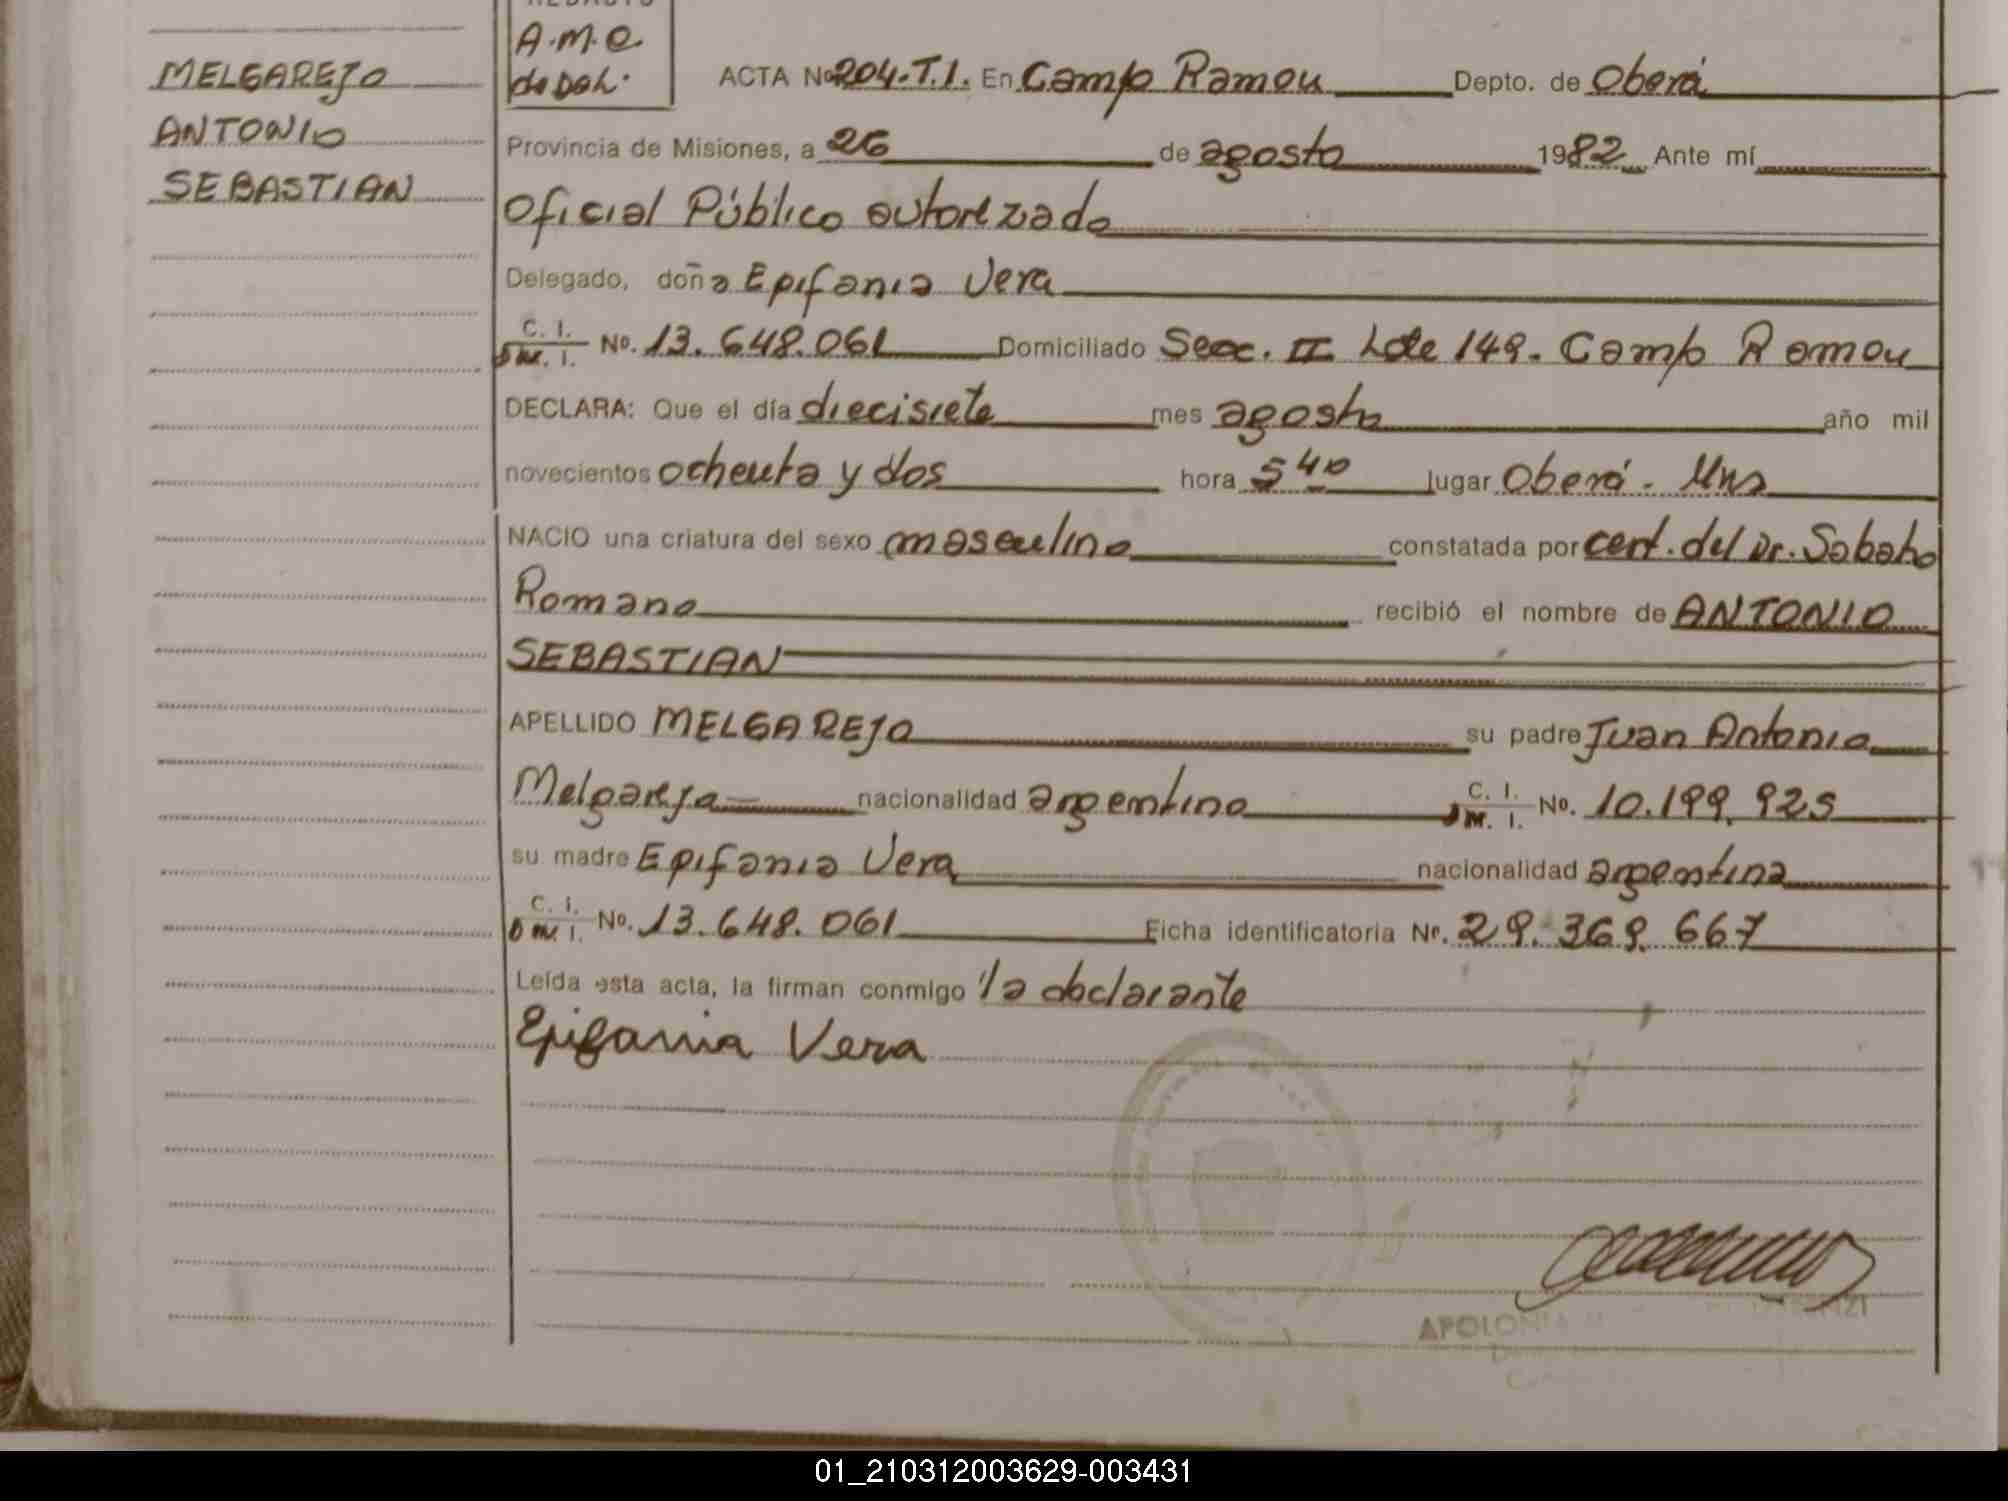 MELGAREJO
ANTONIO
SEBASTIAN
A.M.C
ACTA No 204.T.I. En Campo Ramou Depto. de Oberá
Provincia de Misiones, a 26 de agosto 1982 Ante mí
Oficial Público autorizado
Delegado, doña Epifania Vera
C. I.
D M. I. No. 13.648.061 Domiciliado Secc. II Lote 149. Campo Ramou
DECLARA: Que el día diecisiete mes agosto año mil
novecientos ochenta y dos hora 5 40 lugar Oberá - Mns
NACIO una criatura del sexo masculino constatada por cert. del Dr. Sabato
Romano recibió el nombre de ANTONIO
SEBASTIAN
APELLIDO MELGAREJO su padre Juan Antonio
Melgarejo nacionalidad argentino C. I. D M. I. No. 10.199.925
su madre Epifania Vera nacionalidad argentina
C. I.
D M. I. No. 13.648.061 Ficha identificatoria Nº. 29.369.667
Leída esta acta, la firman conmigo la declarante
Epifania Vera
APOLONIA
01_210312003629-003431